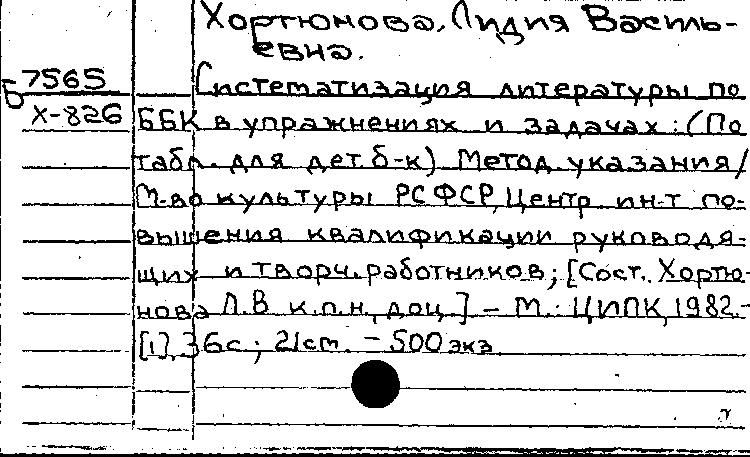 Хортюнова, Лидия Василь-
евна.
Б 7565
Х-826
Систематизация литературы по
ББК в упражнениях и задачах: (По
табл. для дет. б-к) Метод. указания /
М-во культуры РСФСР, Центр. ин-т по-
вышения квалификации руководя-
щих и творч. работников; [Сост. Хортю-
нова Л.В. к.п.н., доц.] – М.: ЦИПК, 1982.-
[1], 36с.; 21см. – 500 экз.